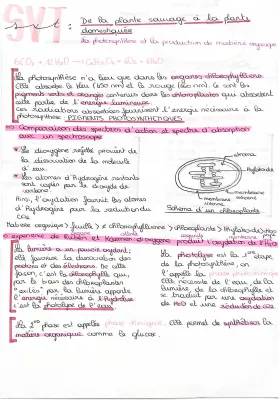 SVT
De la plante sauvage à la plante
domestiquée
La photosynthèse et la production de matière organique
6CO2 + 12H2O → C6H12O6 + 6O2 + 6H2O
La photosynthèse n'a lieu que dans les organes chlorophylliens.
Elle absorbe le bleu (450 nm) et le rouge (660 nm). Ce sont les
pigments verts et oranges contenus dans les chloroplastes qui absorbent
cette partie de l'énergie lumineuse.
Ces radiations absorbées fournissent l'énergie nécessaire à la
photosynthèse : PIGMENTS PHOTOSYNTHÉTIQUES
Comparaison des spectres d'action et spectre d'absorption
avec un spectroscope
Le dioxygène rejeté provient de
la dissociation de la molécule
d'eau.
Les atomes d'Hydrogène restants
sont captés par le dioxyde de
carbone
Ainsi, l'oxydation fournit les atomes
d'Hydrogène pour la réduction du
CO2
stroma
thylakoïde
membrane
interne
membrane
externe
Schéma d'un chloroplaste
Matière organique > feuille > chlorophyllienne > chloroplastes > thylakoïdes
expérience de Ruben et Kamen d'oxygène produit l'oxydation de l'H2O
La lumière a un pouvoir oxydant;
elle favorise la dissociation des
protons et des électrons. De cette
façon, c'est la chlorophylle qui,
par le biais des chloroplastes
"excités" par la lumière apporte
l'énergie nécessaire à l'hydrolyse
c'est la photolyse de l'eau
La photolyse est la 1ère étape
de la photosynthèse, on
l'appelle la phase photochimique
Elle nécessite de l'eau, de la
lumière, de la chlorophylle et
se traduit par une oxydation
de H2O et une réduction de CO2
La 2nde phase est appelée phase chimique. Elle permet de synthétiser la
matière organique comme le glucose.